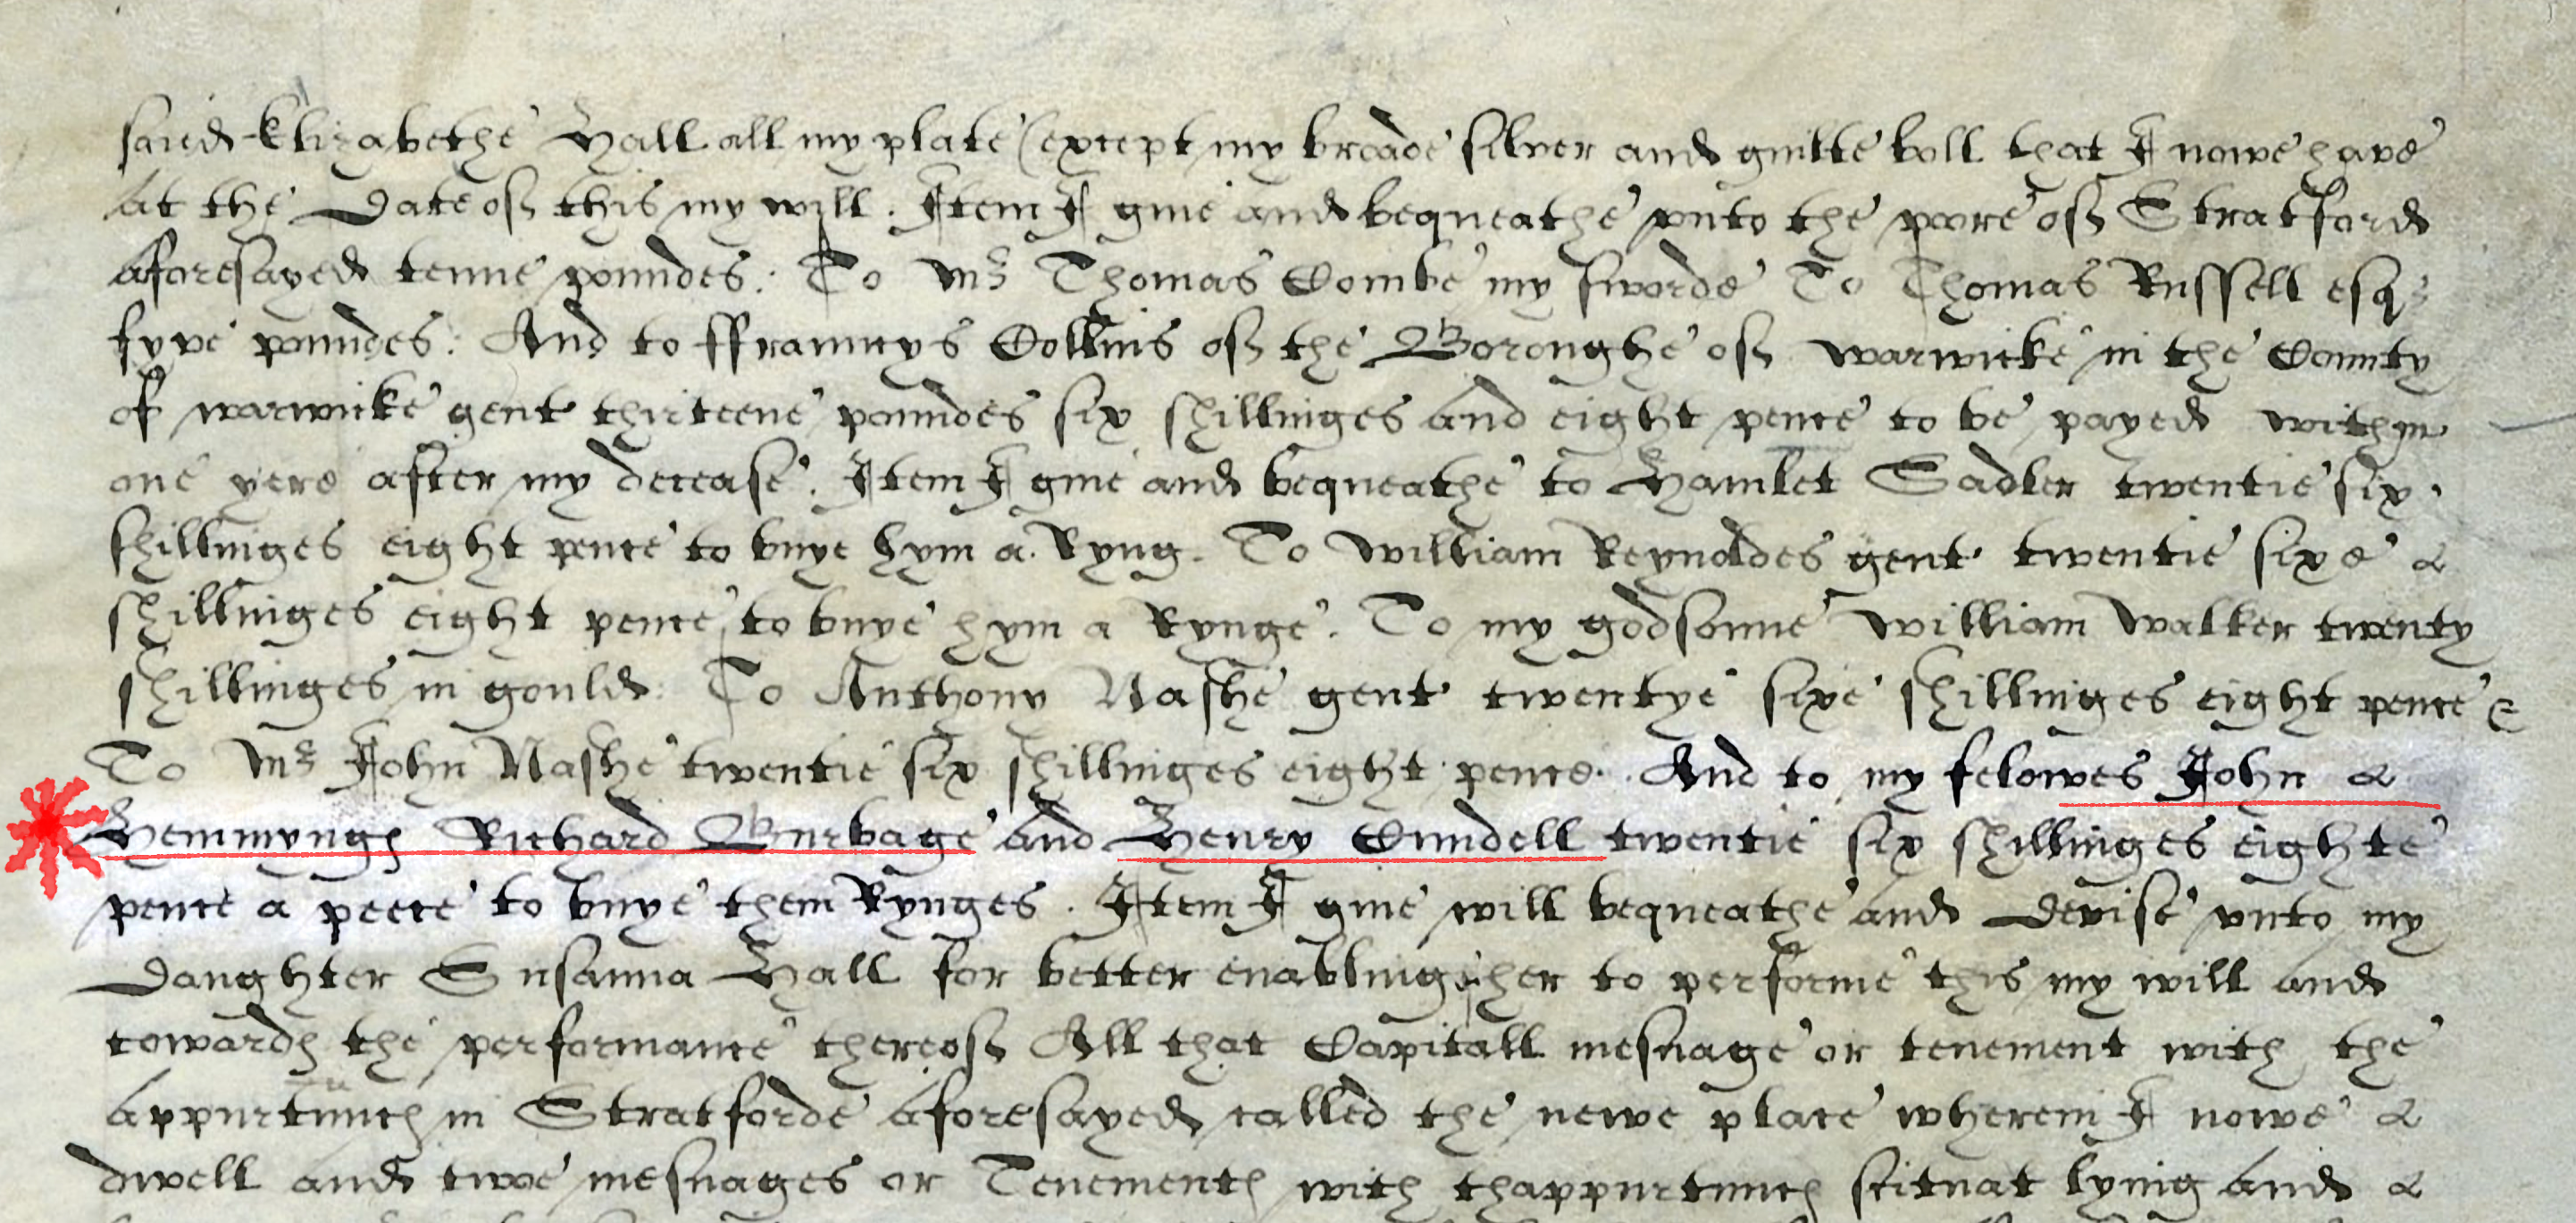 saied Elizabethe Hall all my plate (except my broade silver and guilte boll that I nowe have
At the Date of this my will. Item I give and bequeathe vnto the poore of Stratford
aforesayed tenne poundes: To Mr Thomas Combe my sworde To Thomas Russell esqr
fyve poundes: And to ffrauncys Collins of the Boroughe of warwicke in the County
of warwicke gent thirteene poundes six shillinges and eight pence to be payed within
one yere after my decease. Item I give and bequeathe to Hamlet Sadler twentie six
shillinges eight pence to buye hym a Ryng. To William Reynoldes gent twentie sixe
shillinges eight pence to buye hym a Rynge. To my godsonne William Walker twenty
shillinges in gould: To Anthony Nashe gent twentye sixe shillinges eight pence &
To Mr John Nashe twentie six shillinges eight pence. And to my felowes John
Hemmynges Richard Burbage and Henry Cundell twentie six shillinges eighte
pence a peece to buye them Rynges. Item I give will bequeathe and Devise vnto my
Daughter Susanna Hall for better enabling her to performe this my will and
towardes the performance thereof All that Capitall mesuage or tenement with the
appurtunces in Stratforde aforesayed called the newe place wherein I nowe
dwell and twoe mesuages or Tenementes with thappurtunces scituat lying and